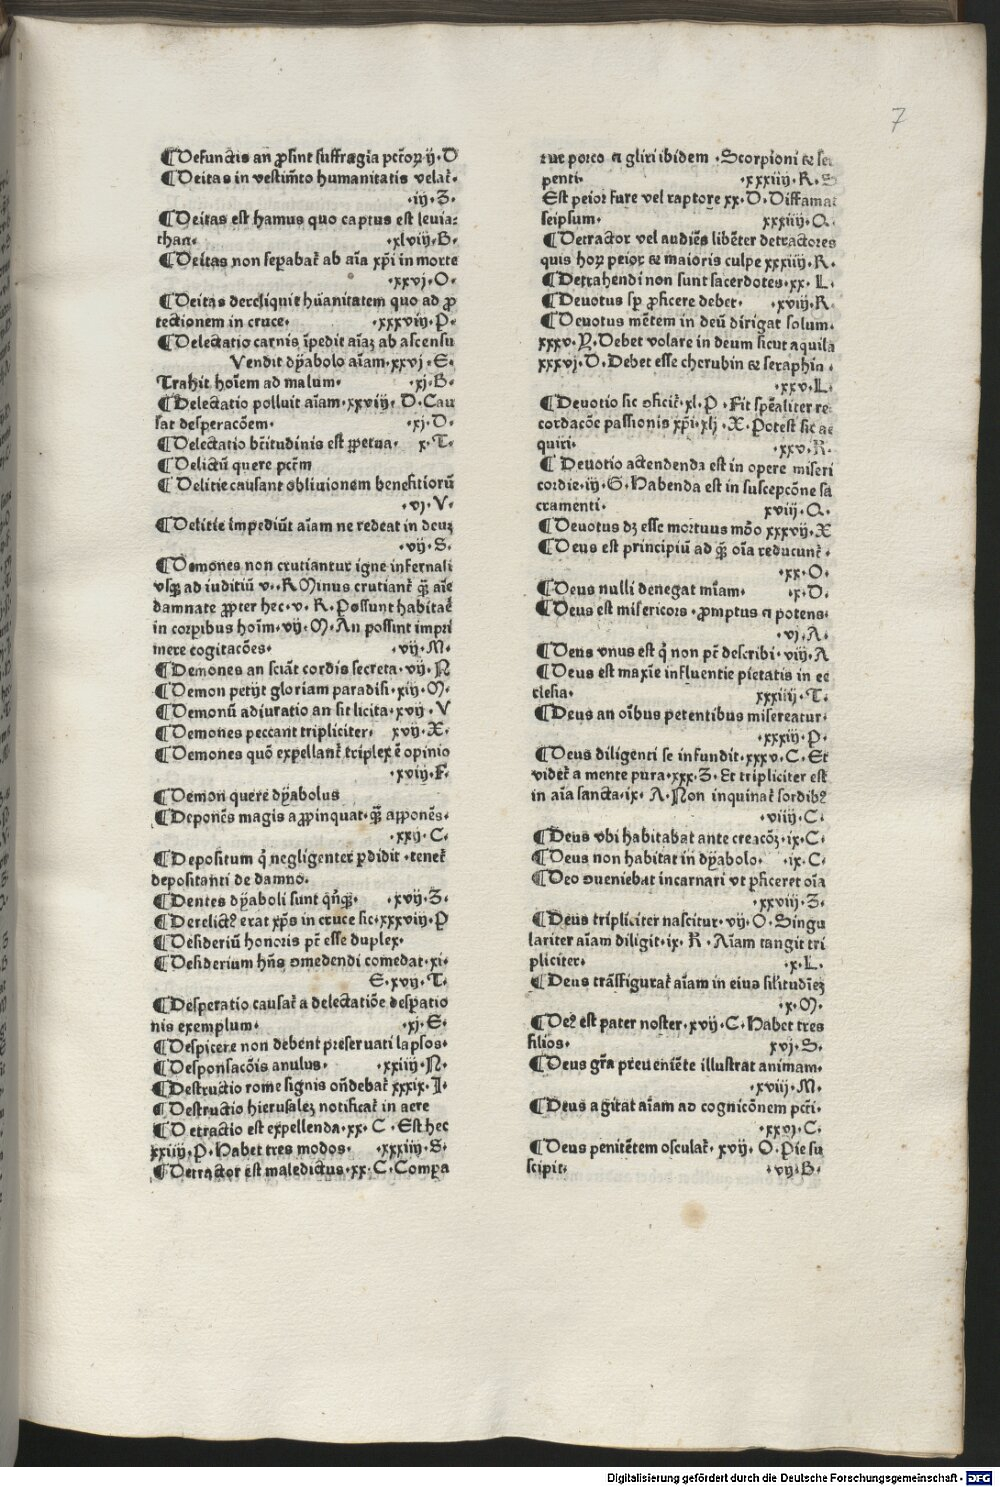 7
¶Defunctis an ꝓsint suffragia pctõꝝ ij·D
¶Deitas in vestimẽto humanitatis velat᷑·
·iij·Z·
¶Deitas est hamus quo captus est leuia⸗
than· ·xlviij·B·
¶Deitas non sepabat᷑ ab aĩa xp̃i in morte
·xxvj·O·
¶Deitas dereliquit hũanitatem quo ad ꝓ
tectionem in cruce· ·xxxviij·P·
¶Delectatio carnis ĩpedit aĩaꝫ ab ascensu
Vendit dẏabolo aĩam·xxvj·E·
Trahit hoĩem ad malum· ·xj·B·
¶Delectatio polluit aĩam·xxviij· D·Cau
sat desperacõem· ·xj·D·
¶Delectatio bt̃itudinis est ꝑpetua· x·T·
¶Delictũ quere pct̃m
¶Delitie causant obliuionem beneficiorũ
·vj·V·
¶Delitie impediũt aĩam ne redeat in deuꝫ
·vij·S·
¶Demones non crutiantur igne infernali
vsqꝫ ad iuditiũ v··R Minus crutiant᷑ qꝫ̃ aĩe
damnate ꝓpter hec·v· R· Possunt habitar̃
in corpibus hoĩm·vij·M·An possint impri
mere cogitacões· ·vij·M·
¶Demones an sciãt cordis secreta·vij·N
¶Demon petijt gloriam paradisi·xiij·M·
¶Demonũ adiuratio an sit licita·xvij·V
¶Demones peccant tripliciter· xvij·X·
¶Demones quõ expellant᷑ triplex ẽ opinio
·xviij·F·
¶Demon quere dẏabolus
¶Deponẽs magis aꝓpinquat·qꝫ̃ apponẽs·
·xxij·C·
¶Depositum q̃ negligenter ꝑdidit ·tenet᷑
depositanti de damno·
¶Dentes dẏaboli sunt qñqꝫ· ·xvij·Z·
¶Derelictꝰ erat xp̃s in cruce sic·xxxviij·P
¶Desideriũ honoris pt̃ esse duplex·
¶Desiderium hñs ꝯmedendi comedat·xi·
E·xvij·T·
¶Desperatio causat᷑ a delectatiõe despatio
nis exemplum· ·xj·E·
¶Despicere non debent preseruati lapsos·
¶Desponsacõis anulus· ·xxiiij·N·
¶Destructio rome signis oñdebat᷑ xxxix·I·
¶Destructio hierusaleꝫ notificat᷑ in aere
¶Detractio est expellenda·xx· C ·Est hec
xxiiij·P·Habet tres modos· ·xxxiiij·S·
¶Detractor est maledictus·xx·C·Compa
tur porco ⁊ gliri ibidem ·Scorpioni & ser
penti· ·xxxiiij·R·S
Est peior fure vel raptore xx·D·Diffamat
seipsum· xxxiiij·Q·
¶Detractor vel audiẽs libẽter detractores
quis hoꝝ peior & maioris culpe xxxiiij·R·
¶Detrahendi non sunt sacerdotes·xx· L·
¶Deuotus sp̃ ꝓficere debet· ·xviij·R·
¶Deuotus mẽtem in deũ dirigat solum·
xxxv·Y·Debet volare in deum sicut aquila
xxxvj·D·Debet esse cherubin & seraphin·
·xxv·L·
¶Deuotio sic ꝯficit᷑·xl·P ·Fit spẽaliter re
cordacõe passionis xp̃i·xlj ·X·Potest sic ac
quiri· ·xxv·R·
¶Deuotio actendenda est in opere miseri
cordie·iij·G·Habenda est in suscepcõne sa
cramenti· xviij·Q·
¶Deuotus dꝫ esse mortuus mõo xxxvij·X
¶Deus est principiũ ad qꝫ̃ oĩa reducunt᷑·
·xx·O·
¶Deus nulli denegat mĩam· ·x·D·
¶Deus est misericors ·ꝓmptus ⁊ potens·
·vj·A·
¶Deus vnus est q̃ non pt̃ describi·viij·A
¶Deus est maxĩe influentie pietatis in ec
clesia· xxxiiij·T·
¶Deus an oĩbus petentibus misereatur·
·xxxiij·P·
¶Deus diligenti se infundit·xxxv·C·Et
videt᷑ a mente pura·xxx·Z·Et tripliciter est
in aĩa sancta·ix· A·Non inquinat᷑ sordibꝰ
·viij·C·
¶Deus vbi habitabat ante creacõꝫ·ix·C·
¶Deus non habitat in dẏabolo· ·ix·C·
¶Deo ꝯueniebat incarnari vt ꝑficeret oĩa
·xxviij·Z·
¶Deus tripliciter nascitur·vij·O·Singu
lariter aĩam diligit·ix· R ·Aĩam tangit tri
pliciter· ·x·L·
¶Deus trãsfigurat᷑ aĩam in eius sil̃itudĩeꝫ
·x·M·
¶Deꝰ est pater noster·xvij·C·Habet tres
filios· xvj·S·
¶Deus gr̃a preueniẽte illustrat animam·
·xviij·M·
¶Deus agitat aĩam ad cognicõnem pct̃i·
·xxvj·C·
¶Deus penitẽtem osculat᷑· xvij· O·Pie su
scipit· ·vij·B·
Digitalisierung gefördert durch die Deutsche Forschungsgemeinschaft · DFG